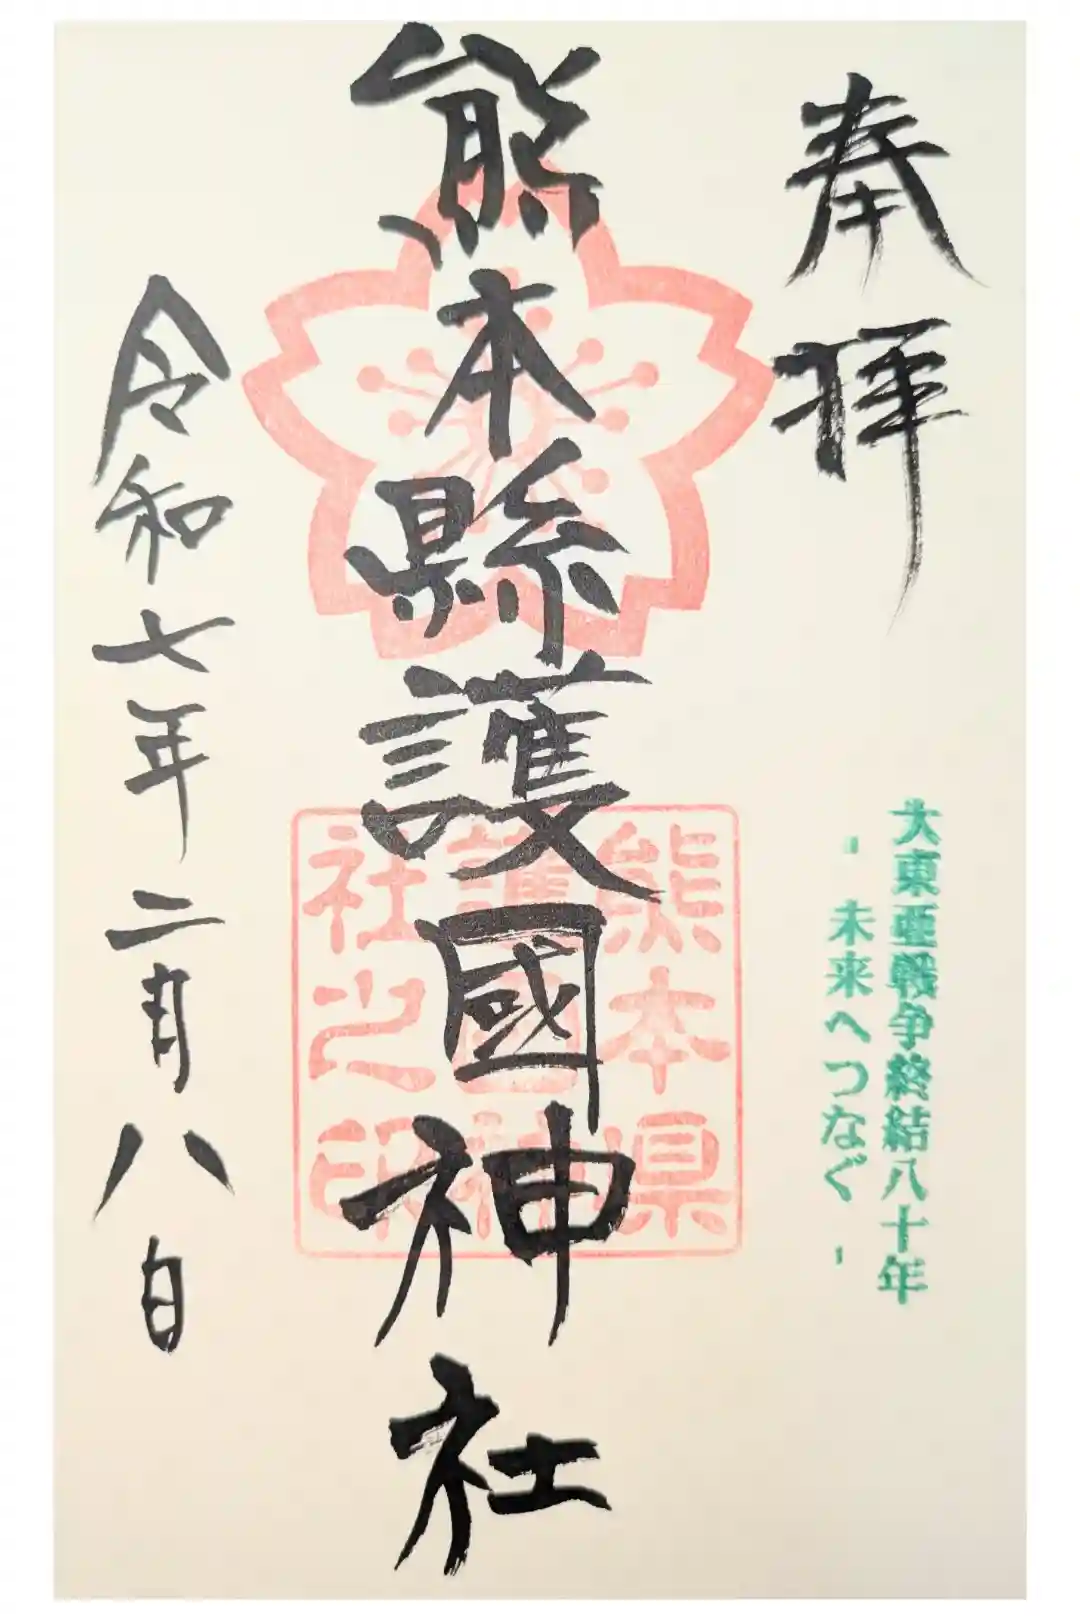 奉拝
大東亜戦争終結八十年
- 未来へつなぐ -
熊本縣護國神社
熊本県
護国神
社之印
令和七年二月八日